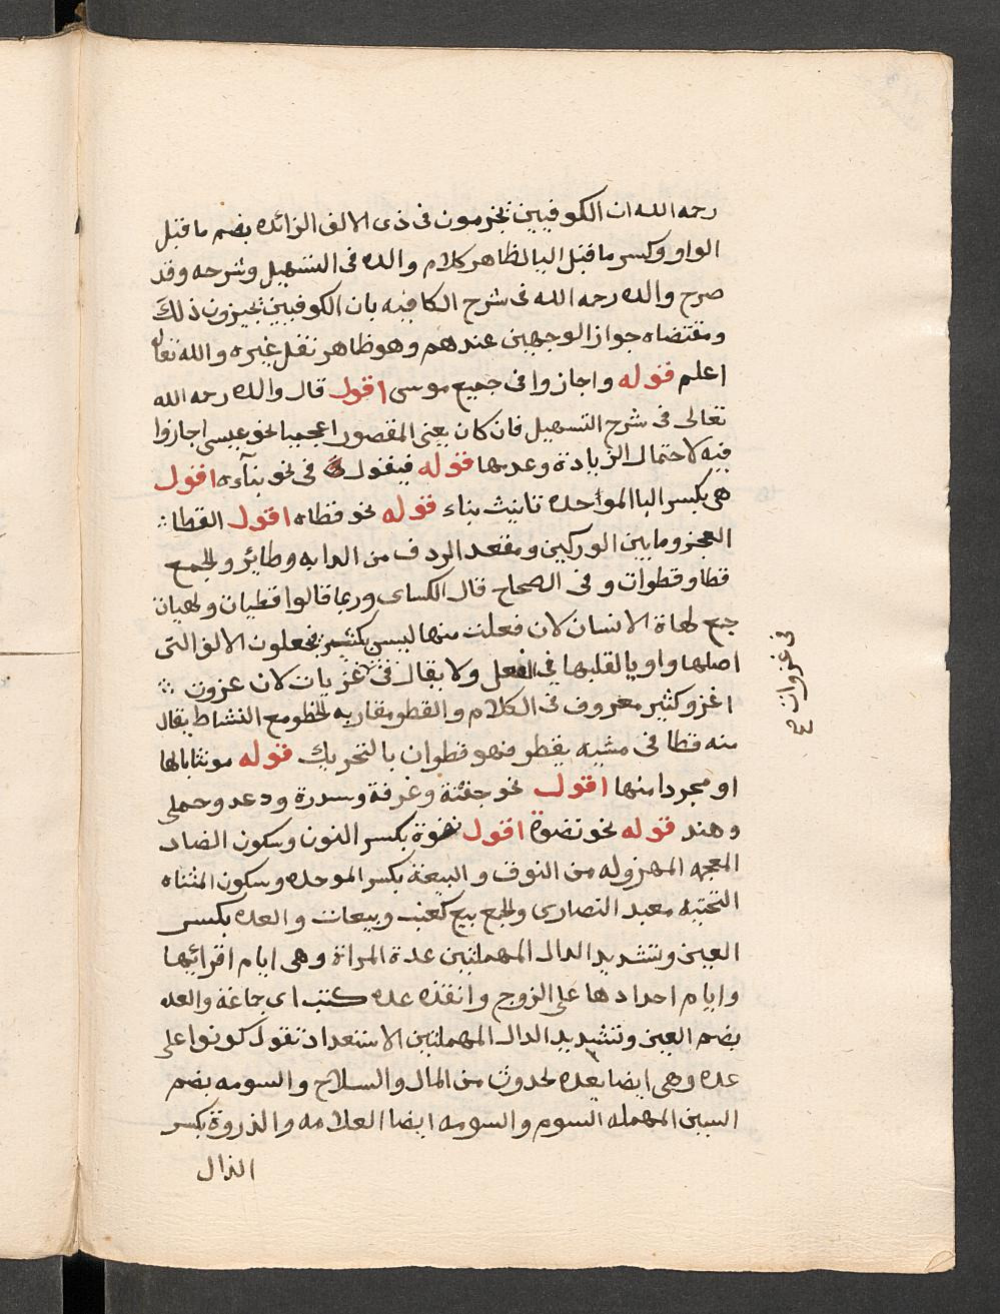 رحمه الله ان الكوفيين يخرمون فى ذى الالف الزائده بضم ما قبل
الواو وكسر ما قبل اليا لظاهر كلام والده فى التسهيل وشرحه وقد
صرح والده رحمه الله فى شرح الكافيه بان الكوفيين يجيزون ذلك
ومقتضاه جواز الوجهين عندهم وهو ظاهر نقل غيره والله تعالى
اعلم قوله واجازوا فى جميع موسى اقول قال والده رحمه الله
تعالى فى شرح التسهيل فان كان يعنى المقصور اعجميا نحو عيسى اجازوا
فيه لاحتمال الزيادة وعدمها قوله فيقول فى نحو بناءه اقول
هى بكسر البا الموحده تانيث بناء قوله نحو قطاه اقول القطا
العجز وما بين الوركين ومقعد الردف من الدابه وطائر والجمع
قطا وقطوات وفى الصحاح قال الكساى وربما قالوا قطيات ولهيات
جمع لهاة الانسان لان فعلت منها ليس بكثير فيجعلون الالف التى
اصلها واو يا لقلبها فى الفعل ولا يقال فى غزيات لان غزوت
اغزو كثير معروف فى الكلام والقطو مقاربه الخطو مع النشاط يقال
منه قطا فى مشيه يقطو فهو قطوان بالتحريك قوله مونثا بالها
او مجردا منها اقول نحو جفنة وغرفة وسدرة ودعد وحملى
وهند قوله نحو نضوة اقول نضوة بكسر النون وسكون الضاد
المعجمه المهزوله من النوق والبيعة بكسر الموحده وسكون المثناه
التحتيه معبد النصارى والجمع بيع كعنب وبيعات والعده بكسر
العين وتشديد الدال المهملتين عدة المراة وهى ايام اقرائها
وايام احدادها على الزوج وانفذه عده كتب اى جاعة والعده
بضم العين وتشديد الدال المهملتين الاستعداد تقول كونوا على
عده وهى ايضا يعده لحدوث من المال والسلاح والسومه بضم
السين المهمله السوم والسومه ايضا العلامه والذروة بكسر
الذال
فى غزوات صح